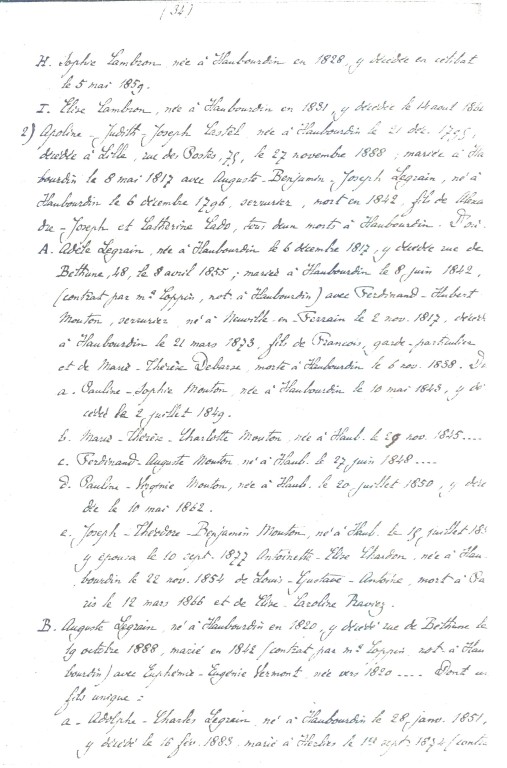 (34)
H. Sophie Lambron née à Haubourdin en 1828, y décédée en célibat
le 5 mai 1859.
I. Elise Lambron, née à Haubourdin en 1831, y décédée le 14 aout 186
2) Apoline-Judith-Joseph Castel née à Haubourdin le 21 déc. 1795,
décédée à Lille, rue des Postes, 75, le 27 novembre 1888 ; mariée à Ha
bourdin le 8 mai 1817 avec Auguste-Benjamin-Joseph Legrain, né à
Haubourdin le 6 décembre 1796, serrurier, mort en 1842, fils de Alexa
dre-Joseph et Catherine Cado, tous deux morts à Haubourdin. D'où :
A. Adèle Legrain, née à Haubourdin le 6 décembre 1817, y décédée rue de
Béthune, 48, le 8 avril 1855 ; mariée à Haubourdin le 8 juin 1842,
(contrat par me Loppin, not. à Haubourdin) avec Ferdinand-Hubert
Mouton, serrurier, né à Neuville-en-Ferrain le 2 nov. 1817, décéd
à Haubourdin le 21 mars 1873, fils de François, garde-particulier
et de Marie-Thérèse Debarse, morte à Haubourdin le 6 nov. 1838. D
a. Pauline-Sophie Mouton, née à Haubourdin le 10 mai 1843, y dé
cédée le 2 juillet 1849.
b. Marie-Thérèse-Charlotte Mouton, née à Haub. le 29 nov. 1845....
c. Ferdinand-Auguste Mouton né à Haub. le 27 juin 1848....
d. Pauline-Virginie Mouton, née à Haub. le 20 juillet 1850, y décé
dée le 10 mai 1862.
e. Joseph-Théodore-Benjamin Mouton, né à Haub. le 15 juillet 185
y épousa le 10 sept. 1877 Antoinette-Elise Chardon, née à Hau
bourdin le 22 nov. 1854 de Louis-Gustave-Antoine, mort à Pa
ris le 12 mars 1866 et de Elise-Caroline Raviez.
B. Auguste Legrain, né à Haubourdin en 1820, y décédé rue de Béthune le
19 octobre 1888, marié en 1842 (contrat par me Loppin, not. à Hau
bourdin) avec Euphémie-Eugénie Vermont, née vers 1820.... Dont un
fils unique :
a. Adolphe-Charles Legrain, né à Haubourdin le 28 janv. 1851,
y décédé le 16 fév. 1883, marié à Herlies le 1er sept. 1874 (contra